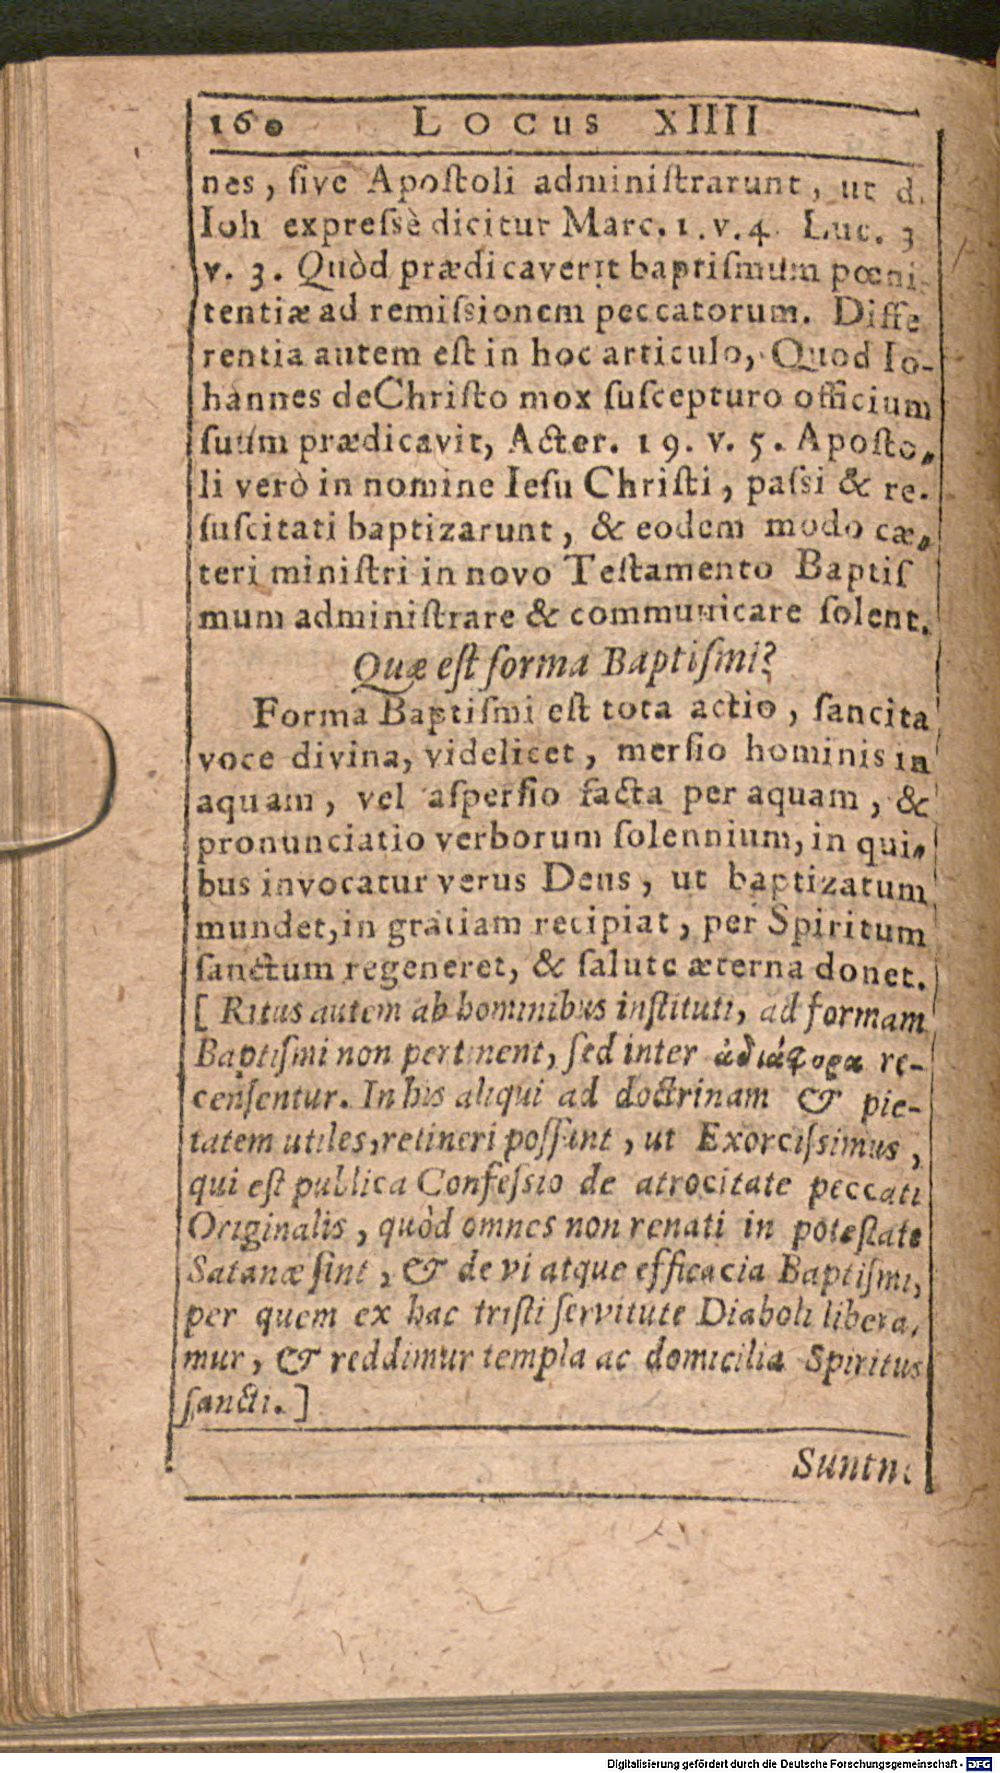 160 Locus XIIII
nes, ſive Apoſtoli adminiſtrarunt, ut d.
Ioh expreſsè dicitur Marc. 1. v. 4. Luc. 3
v. 3. Quòd prædicaverit baptiſmum pœni-
tentiæ ad remiſsionem peccatorum. Diffe
rentia autem eſt in hoc articulo, Quod Io-
hannes deChriſto mox ſuſcepturo officium
ſuum prædicavit, Acter. 19. v. 5. Apoſto-
li verò in nomine Ieſu Chriſti, paſsi & re-
ſuſcitati baptizarunt, & eodem modo cæ-
teri miniſtri in novo Teſtamento Baptiſ
mum adminiſtrare & communicare ſolent.
Quæ eſt forma Baptiſmi?
Forma Baptiſmi eſt tota actio, ſancita
voce divina, videlicet, merſio hominis in
aquam, vel aſperſio facta per aquam, &
pronunciatio verborum ſolennium, in qui-
bus invocatur verus Deus, ut baptizatum
mundet, in gratiam recipiat, per Spiritum
ſanctum regeneret, & ſalute æterna donet.
[ Ritus autem ab hominibus inſtituti, ad formam
Baptiſmi non pertinent, ſed inter ἀδιάφορα re-
cenſentur. In his aliqui ad doctrinam & pie-
tatem utiles, retineri poſſunt, ut Exorciſsimus,
qui eſt publica Confeſsio de atrocitate peccati
Originalis, quòd omnes non renati in poteſtate
Satanæ ſint, & de vi atque efficacia Baptiſmi,
per quem ex hac triſti ſervitute Diaboli libera-
mur, & reddimur templa ac domicilia Spiritus
ſancti. ]
Suntne
Digitalisierung gefördert durch die Deutsche Forschungsgemeinschaft - DFG